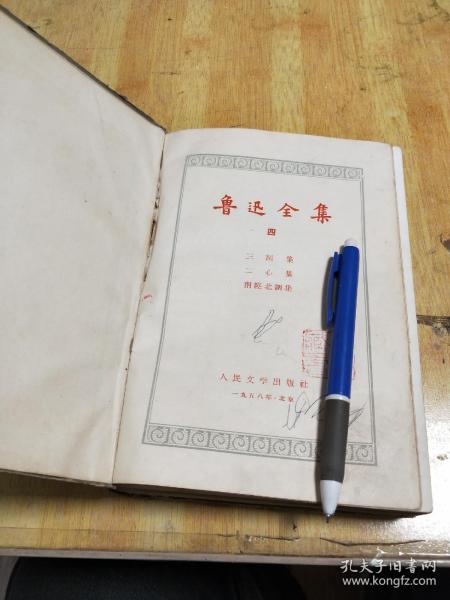 鲁迅全集
四
三闲集
二心集
南腔北調集
人民文学出版社
一九五八年·北京
孔夫子旧书网
www.kongfz.com